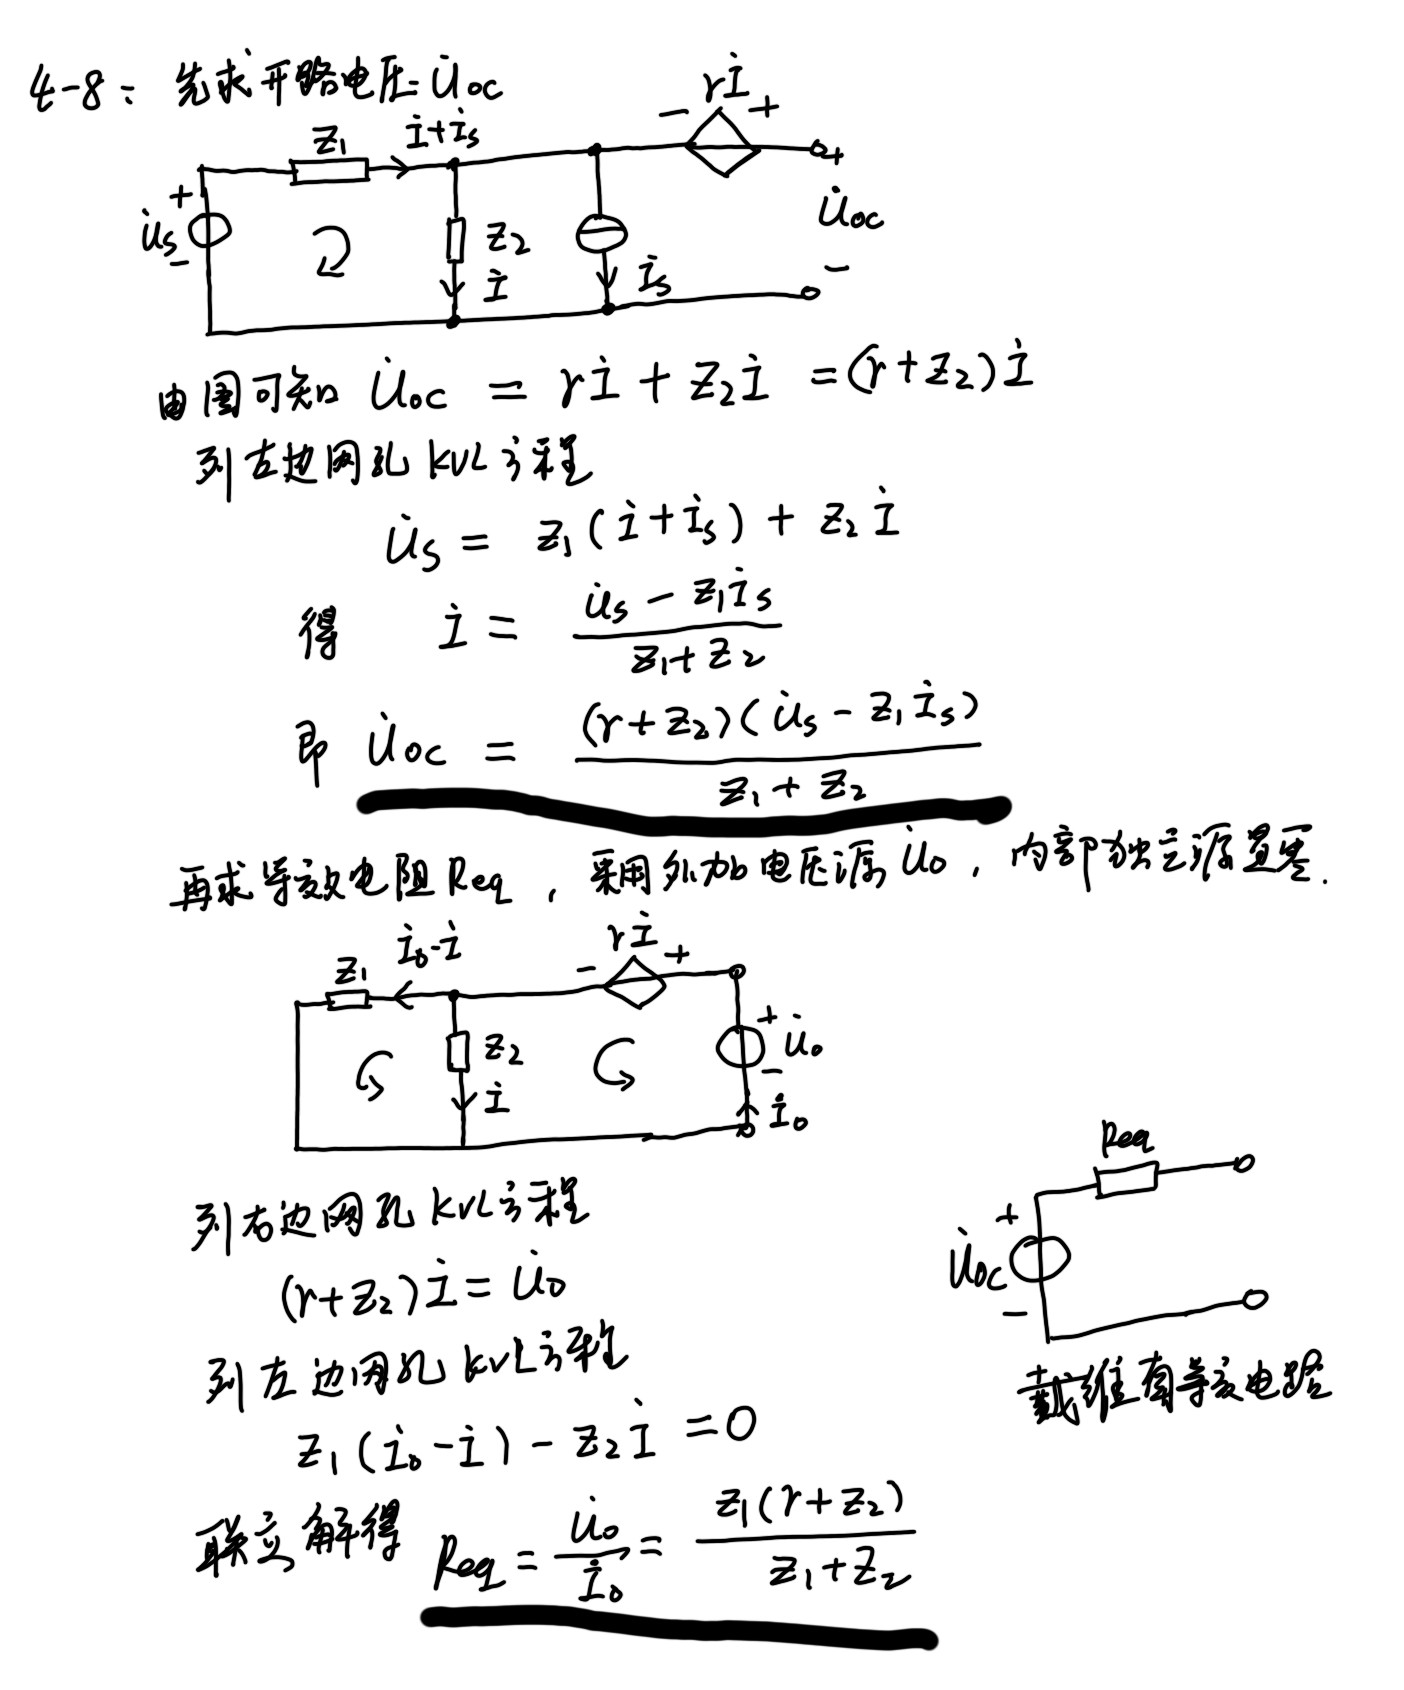 4-8: 先求开路电压 U̇oc
Z₁ İ+İs - rİ +
+ U̇s - Z₂ İ İs + U̇oc -
由图可知 U̇oc = rİ + Z₂İ = (r+Z₂)İ
列左边网孔KVL方程
U̇s = Z₁(İ+İs) + Z₂İ
得 İ = (U̇s - Z₁İs) / (Z₁+Z₂)
即 U̇oc = (r+Z₂)(U̇s - Z₁İs) / (Z₁+Z₂)
再求等效电阻Req, 采用外加电压源U̇o, 内部独立源置零.
Z₁ İo-İ - rİ +
Z₂ İ + U̇o - İo
列右边网孔KVL方程
(r+Z₂)İ = U̇o
列左边网孔KVL方程
Z₁(İo-İ) - Z₂İ = 0
联立解得 Req = U̇o/İo = Z₁(r+Z₂) / (Z₁+Z₂)
Req
+ U̇oc -
戴维南等效电路